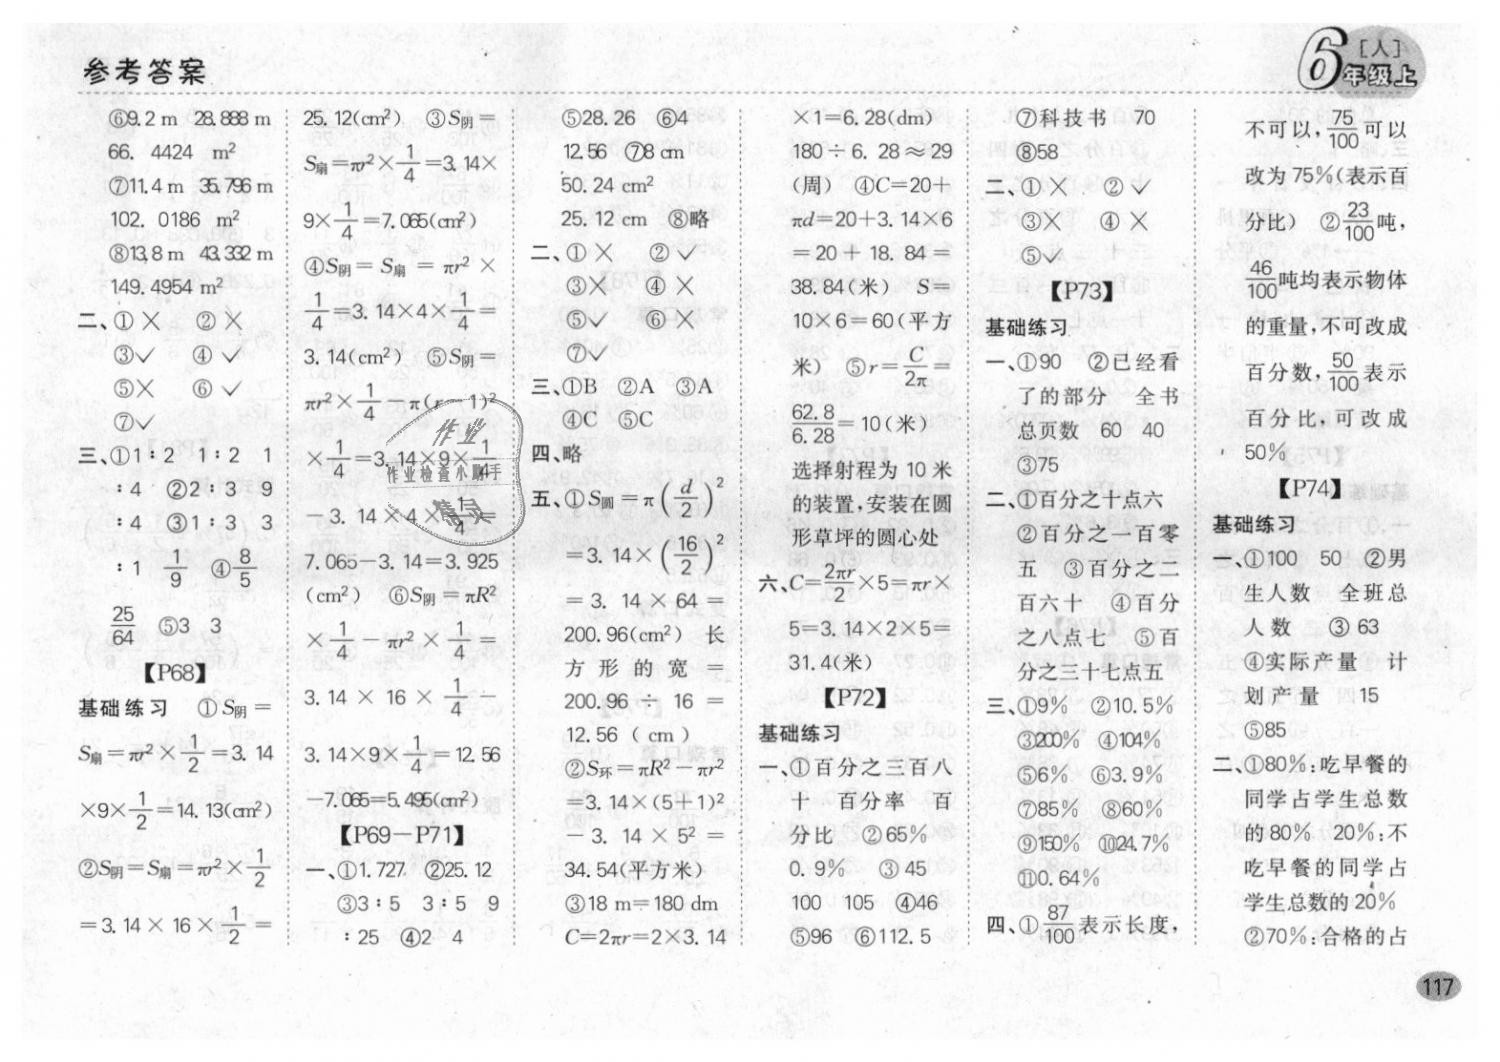 参考答案
6[人]
年级上
⑥9.2 m 28.888 m
66.4424 m²
⑦11.4 m 35.796 m
102.0186 m²
⑧13.8 m 43.332 m
149.4954 m²
二、①× ②×
③✓ ④✓
⑤× ⑥✓
⑦✓
三、①1∶2 1∶2 1
∶4 ②2 3 9
∶4 ③1∶3 3
∶1 1/9 ④8/5
25/64 ⑤3 3
【P68】
基础练习 ①S阴=
S扇=πr²×1/2=3.14
×9×1/2=14.13(cm²)
②S阴=S扇=πr²×1/2
=3.14×16×1/2=
25.12(cm²) ③S阴=
S扇=πr²×1/4=3.14×
9×1/4=7.065(cm²)
④S阴=S扇=πr²×
1/4=3.14×4×1/4=
3.14(cm²) ⑤S阴=
πr²×1/4-π(r-1)²
×1/4=3.14×9×1/4
-3.14×4×1/4=
7.065-3.14=3.925
(cm²) ⑥S阴=πR²
×1/4-πr²×1/4=
3.14×16×1/4-
3.14×9×1/4=12.56
-7.065=5.495(cm²)
【P69-P71】
一、①1.727 ②25.12
③3∶5 3∶5 9
∶25 ④2 4
作业
作业检查小助手
⑤28.26 ⑥4
12.56 ⑦8 cm
50.24 cm²
25.12 cm ⑧略
二、①× ②✓
③× ④×
⑤✓ ⑥×
⑦✓
三、①B ②A ③A
④C ⑤C
四、略
五、①S圆=π(d/2)²
=3.14×(16/2)²
=3.14×64=
200.96(cm²) 长
方形的宽=
200.96÷16=
12.56(cm)
②S环=πR²-πr²
=3.14×(5+1)²
-3.14×5²=
34.54(平方米)
③18 m=180 dm
C=2πr=2×3.14
×1=6.28(dm)
180÷6.28≈29
(周) ④C=20+
πd=20+3.14×6
=20+18.84=
38.84(米) S=
10×6=60(平方
米) ⑤r=C/2π=
62.8/6.28=10(米)
选择射程为10米
的装置,安装在圆
形草坪的圆心处
六、C=2πr/2×5=πr×
5=3.14×2×5=
31.4(米)
【P72】
基础练习
一、①百分之三百八
十 百分率 百
分比 ②65%
0.9% ③45
100 105 ④46
⑤96 ⑥112.5
⑦科技书 70
⑧58
二、①× ②✓
③× ④×
⑤✓
【P73】
基础练习
一、①90 ②已经看
了的部分 全书
总页数 60 40
③75
二、①百分之十点六
②百分之一百零
五 ③百分之二
百六十 ④百分
之八点七 ⑤百
分之三十七点五
三、①9% ②10.5%
③200% ④104%
⑤6% ⑥3.9%
⑦85% ⑧60%
⑨150% ⑩24.7%
⑪0.64%
四、①87/100表示长度,
不可以,75/100可以
改为75%(表示百
分比) ②23/100吨,
46/100吨均表示物体
的重量,不可改成
百分数,50/100表示
百分比,可改成
50%
【P74】
基础练习
一、①100 50 ②男
生人数 全班总
人数 ③63
④实际产量 计
划产量 15
⑤85
二、①80%:吃早餐的
同学占学生总数
的80% 20%:不
吃早餐的同学占
学生总数的20%
②70%:合格的占
117